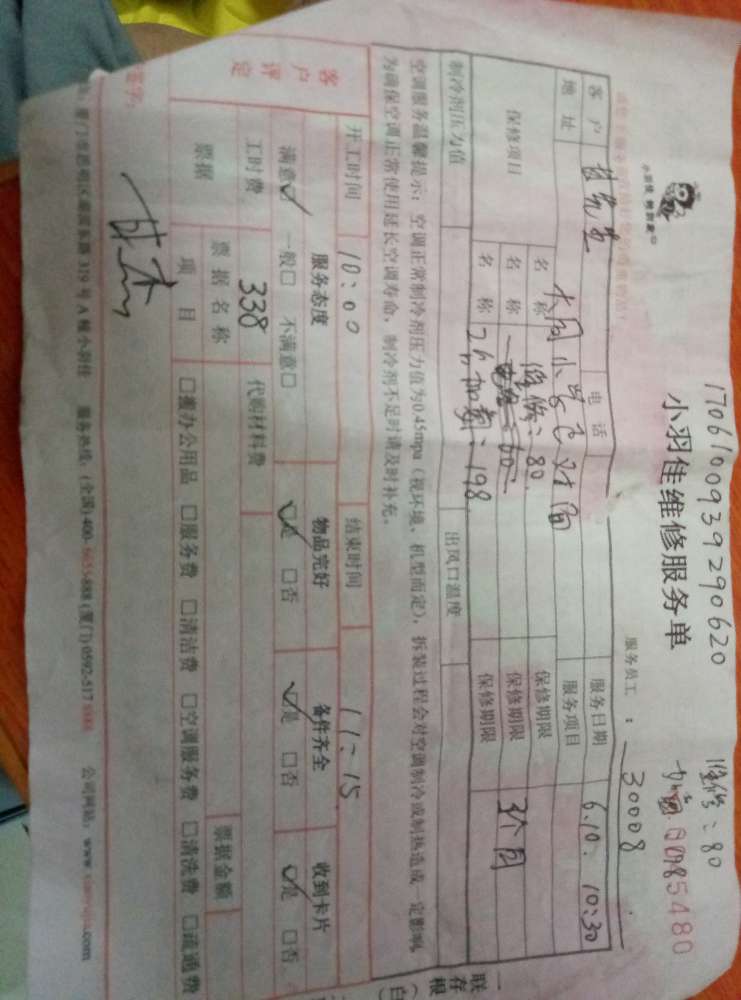 1706100939290620
维修:80
小羽佳维修服务单
00985480
小羽佳 赖到家
服务员工: 30008
客户 电话 服务日期 6.10. 10:30
地址 大同小学对面 服务项目
保修项目 名称 维修:80 保修期限
名称 保修期限 3个月
名称 加剂:198 保修期限
制冷剂压力值 出风口温度
空调服务温馨提示:空调正常制冷剂压力值为0.45mpa(视环境、机型而定),拆装过程会对空调制冷或制热造成一定影响,
为确保空调正常使用延长空调寿命,制冷剂不足时请及时补充。
开工时间 10:00 结束时间 11:15
客户评定 服务态度 物品完好 备件齐全 收到卡片
满意☑ 一般□ 不满意□ ☑是 □否 ☑是 □否 ☑是 □否
工时费 338 代购材料费
票据 票据名称 票据金额
项目 □搬办公用品 □服务费 □清洁费 □空调服务费 □清洗费 □疏通费
签字:
319号A幢小羽佳 服务热线:(全国)400-6655-888(厦门)0592-517 公司网站:www.
一联存根(白